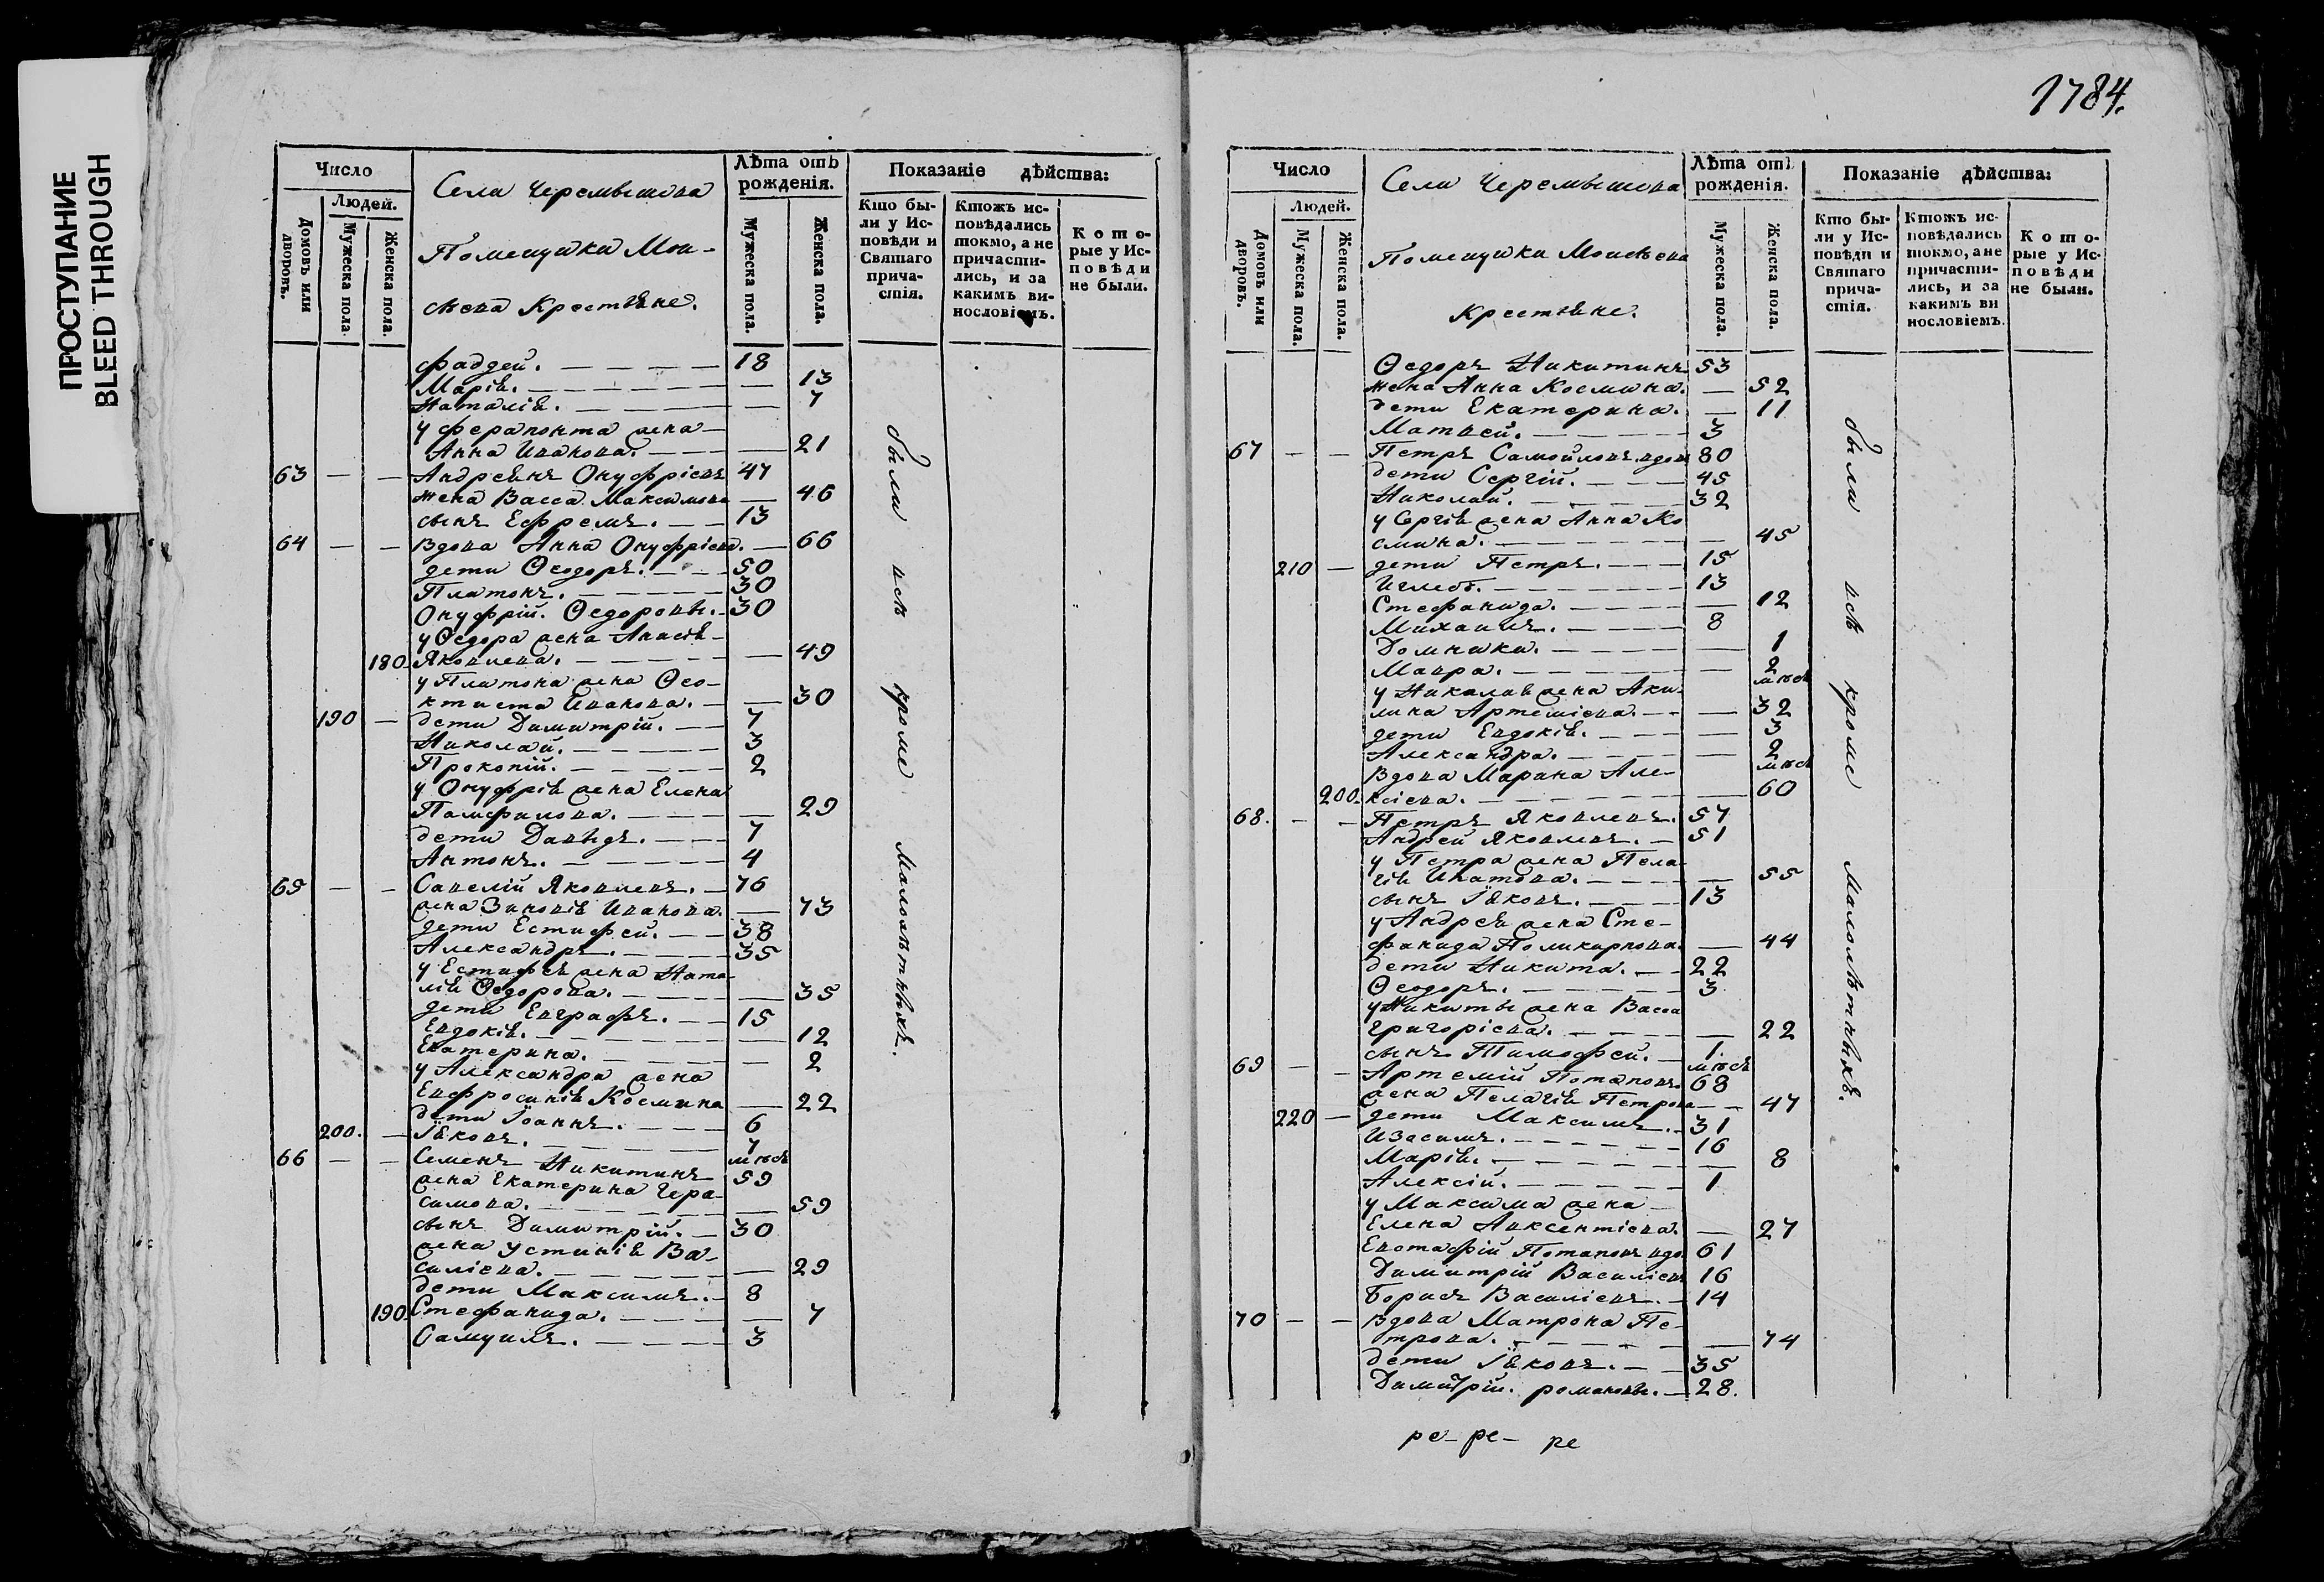 ПРОСТУПАНИЕ
BLEED THROUGH
1784.
Число
Людей.
Домовъ или дворовъ.
Мужеска пола.
Женска пола.
Села Черемышева
Помещика Мои-
сѣева Крестьяне.
Лѣта отъ рожденія.
Мужеска пола.
Женска пола.
Показаніе дѣйства:
Кто бы-
ли у Ис-
повѣди и
Святаго
прича-
стія.
Ктожъ ис-
повѣдались
токмо, а не
причасти-
лись, и за
какимъ ви-
нословіемъ.
Кото-
рые у Ис-
повѣди
не были.
Фаддей. 18
Марія. 13
Наталія. 7
у Ферапонта жена
Анна Иванова. 21
63 Андреянъ Онуфріевъ 47
жена Васса Максимова 46
сынъ Ефремъ. 13
64 Вдова Анна Онуфріева. 66
дети Ѳеодоръ. 50
Платонъ. 30
Онуфрій. Ѳедоровы. 30
у Ѳедора жена Анасія
180 Яковлева. 49
у Платона жена Ѳео-
ктиста Иванова. 30
190 дети Димитрій. 7
Николай. 3
Прокопій. 2
у Онуфрія жена Елена
Памфилова. 29
дети Давыдъ. 7
Антонъ. 4
65 Савелій Яковлевъ. 76
жена Зиновія Иванова. 73
дети Естифей. 38
Александръ. 35
у Естифея жена Ната-
лія Ѳедорова. 35
дети Евграфъ. 15
Евдокія. 12
Екатерина. 2
у Александра жена
Евфросинія Космина 22
дети Іоаннъ. 6
200. Іяковъ. 7 мѣся
66 Семенъ Никитинъ 59
жена Екатерина Гера-
симова. 59
сынъ Димитрій. 30
жена Устинія Ва-
силіева. 29
дети Максимъ. 8
190 Стефанида. 7
Самуилъ. 3
были всѣ кроме малолѣтныхъ.
Число
Людей.
Домовъ или дворовъ.
Мужеска пола.
Женска пола.
Села Черемышева
Помещика Моисѣева
Крестьяне.
Лѣта отъ рожденія.
Мужеска пола.
Женска пола.
Показаніе дѣйства:
Кто бы-
ли у Ис-
повѣди и
Святаго
прича-
стія.
Ктожъ ис-
повѣдались
токмо, а не
причасти-
лись, и за
какимъ ви
нословіемъ.
Кото-
рые у Ис-
повѣди
не были.
Ѳедоръ Никитинъ 53
жена Анна Космина. 52
дети Екатерина. 11
Матвей. 3
67 Петръ Самойловъ вдовъ 80
дети Сергій. 45
Николай. 32
у Сергія жена Анна Ко
смина. 45
210 дети Петръ. 15
Иглебъ. 13
Стефанида. 12
Михаилъ. 8
Домника. 1
Мавра. 2 мѣся
у Николая жена Аки-
лина Артеміева. 32
дети Евдокія. 3
Александра. 2 мѣся
Вдова Марина Але-
200 ксіева. 60
68. Петръ Яковлевъ. 57
Андрей Яковлевъ. 51
у Петра жена Пела
гія Ипатова. 55
сынъ Іяковъ. 13
у Андрея жена Сте-
фанида Поликарпова. 44
дети Никита. 22
Ѳеодоръ. 3
у Никиты жена Васса
Григоріева. 22
сынъ Тимофей. 1. мѣся
69 Артемій Потаповъ 68
жена Пелагія Петрова 47
220 дети Максимъ. 31
Изосимъ. 16
Марія. 8
Алексій. 1
у Максима жена
Елена Авксентіева. 27
Евстафій Потаповъ вдо. 61
Димитрій Василіевъ 16
Борисъ Василіевъ. 14
70 Вдова Матрона Пе-
трова. 74
дети Іяковъ. 35
Димитрій. романовы. 28.
были всѣ кроме малолѣтныхъ.
ре- ре- ре